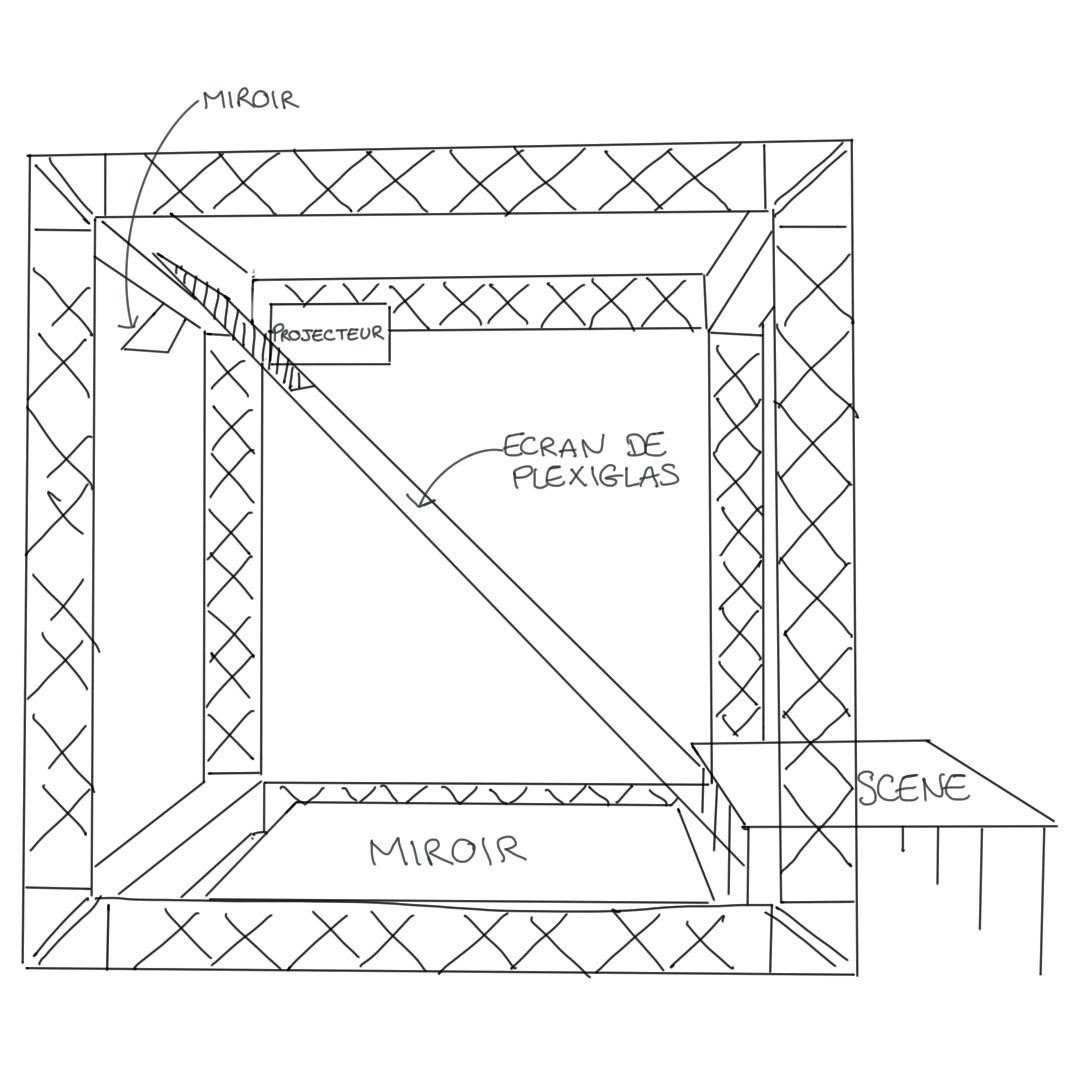 MIROIR
PROJECTEUR
ECRAN DE
PLEXIGLAS
SCENE
MIROIR